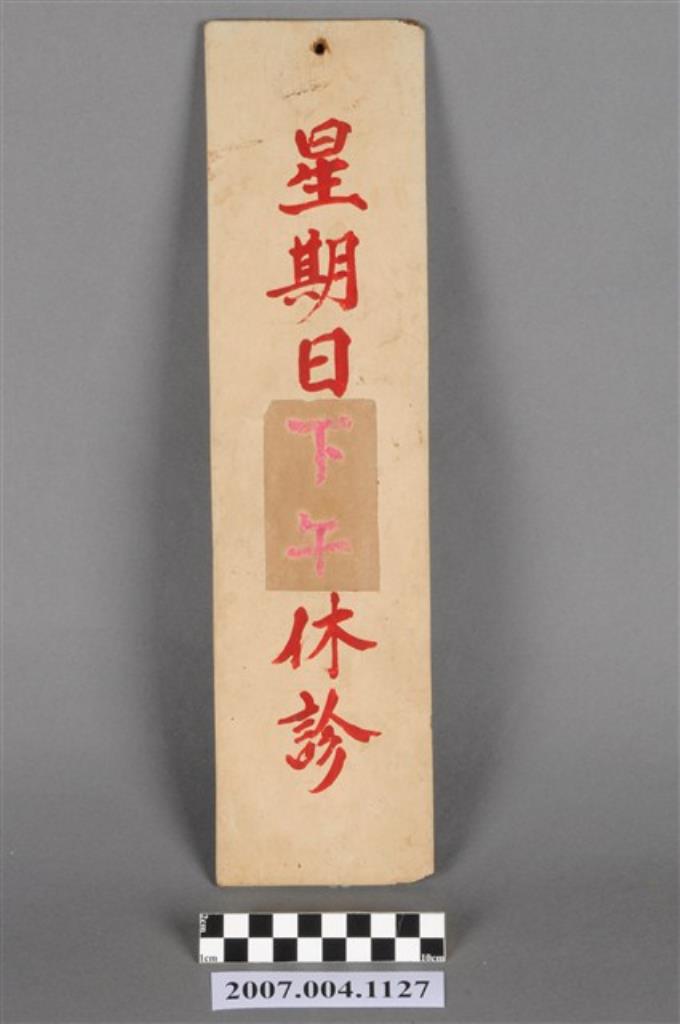 星期日下午休診
2cm
1cm
10cm
2007.004.1127